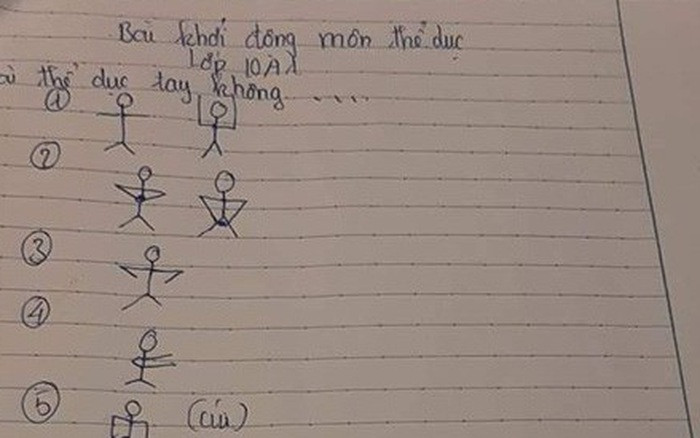 Bài khởi động môn thể dục
Lớp 10A1
ài thể dục tay không ....
①
②
③
④
⑤ (cúi)